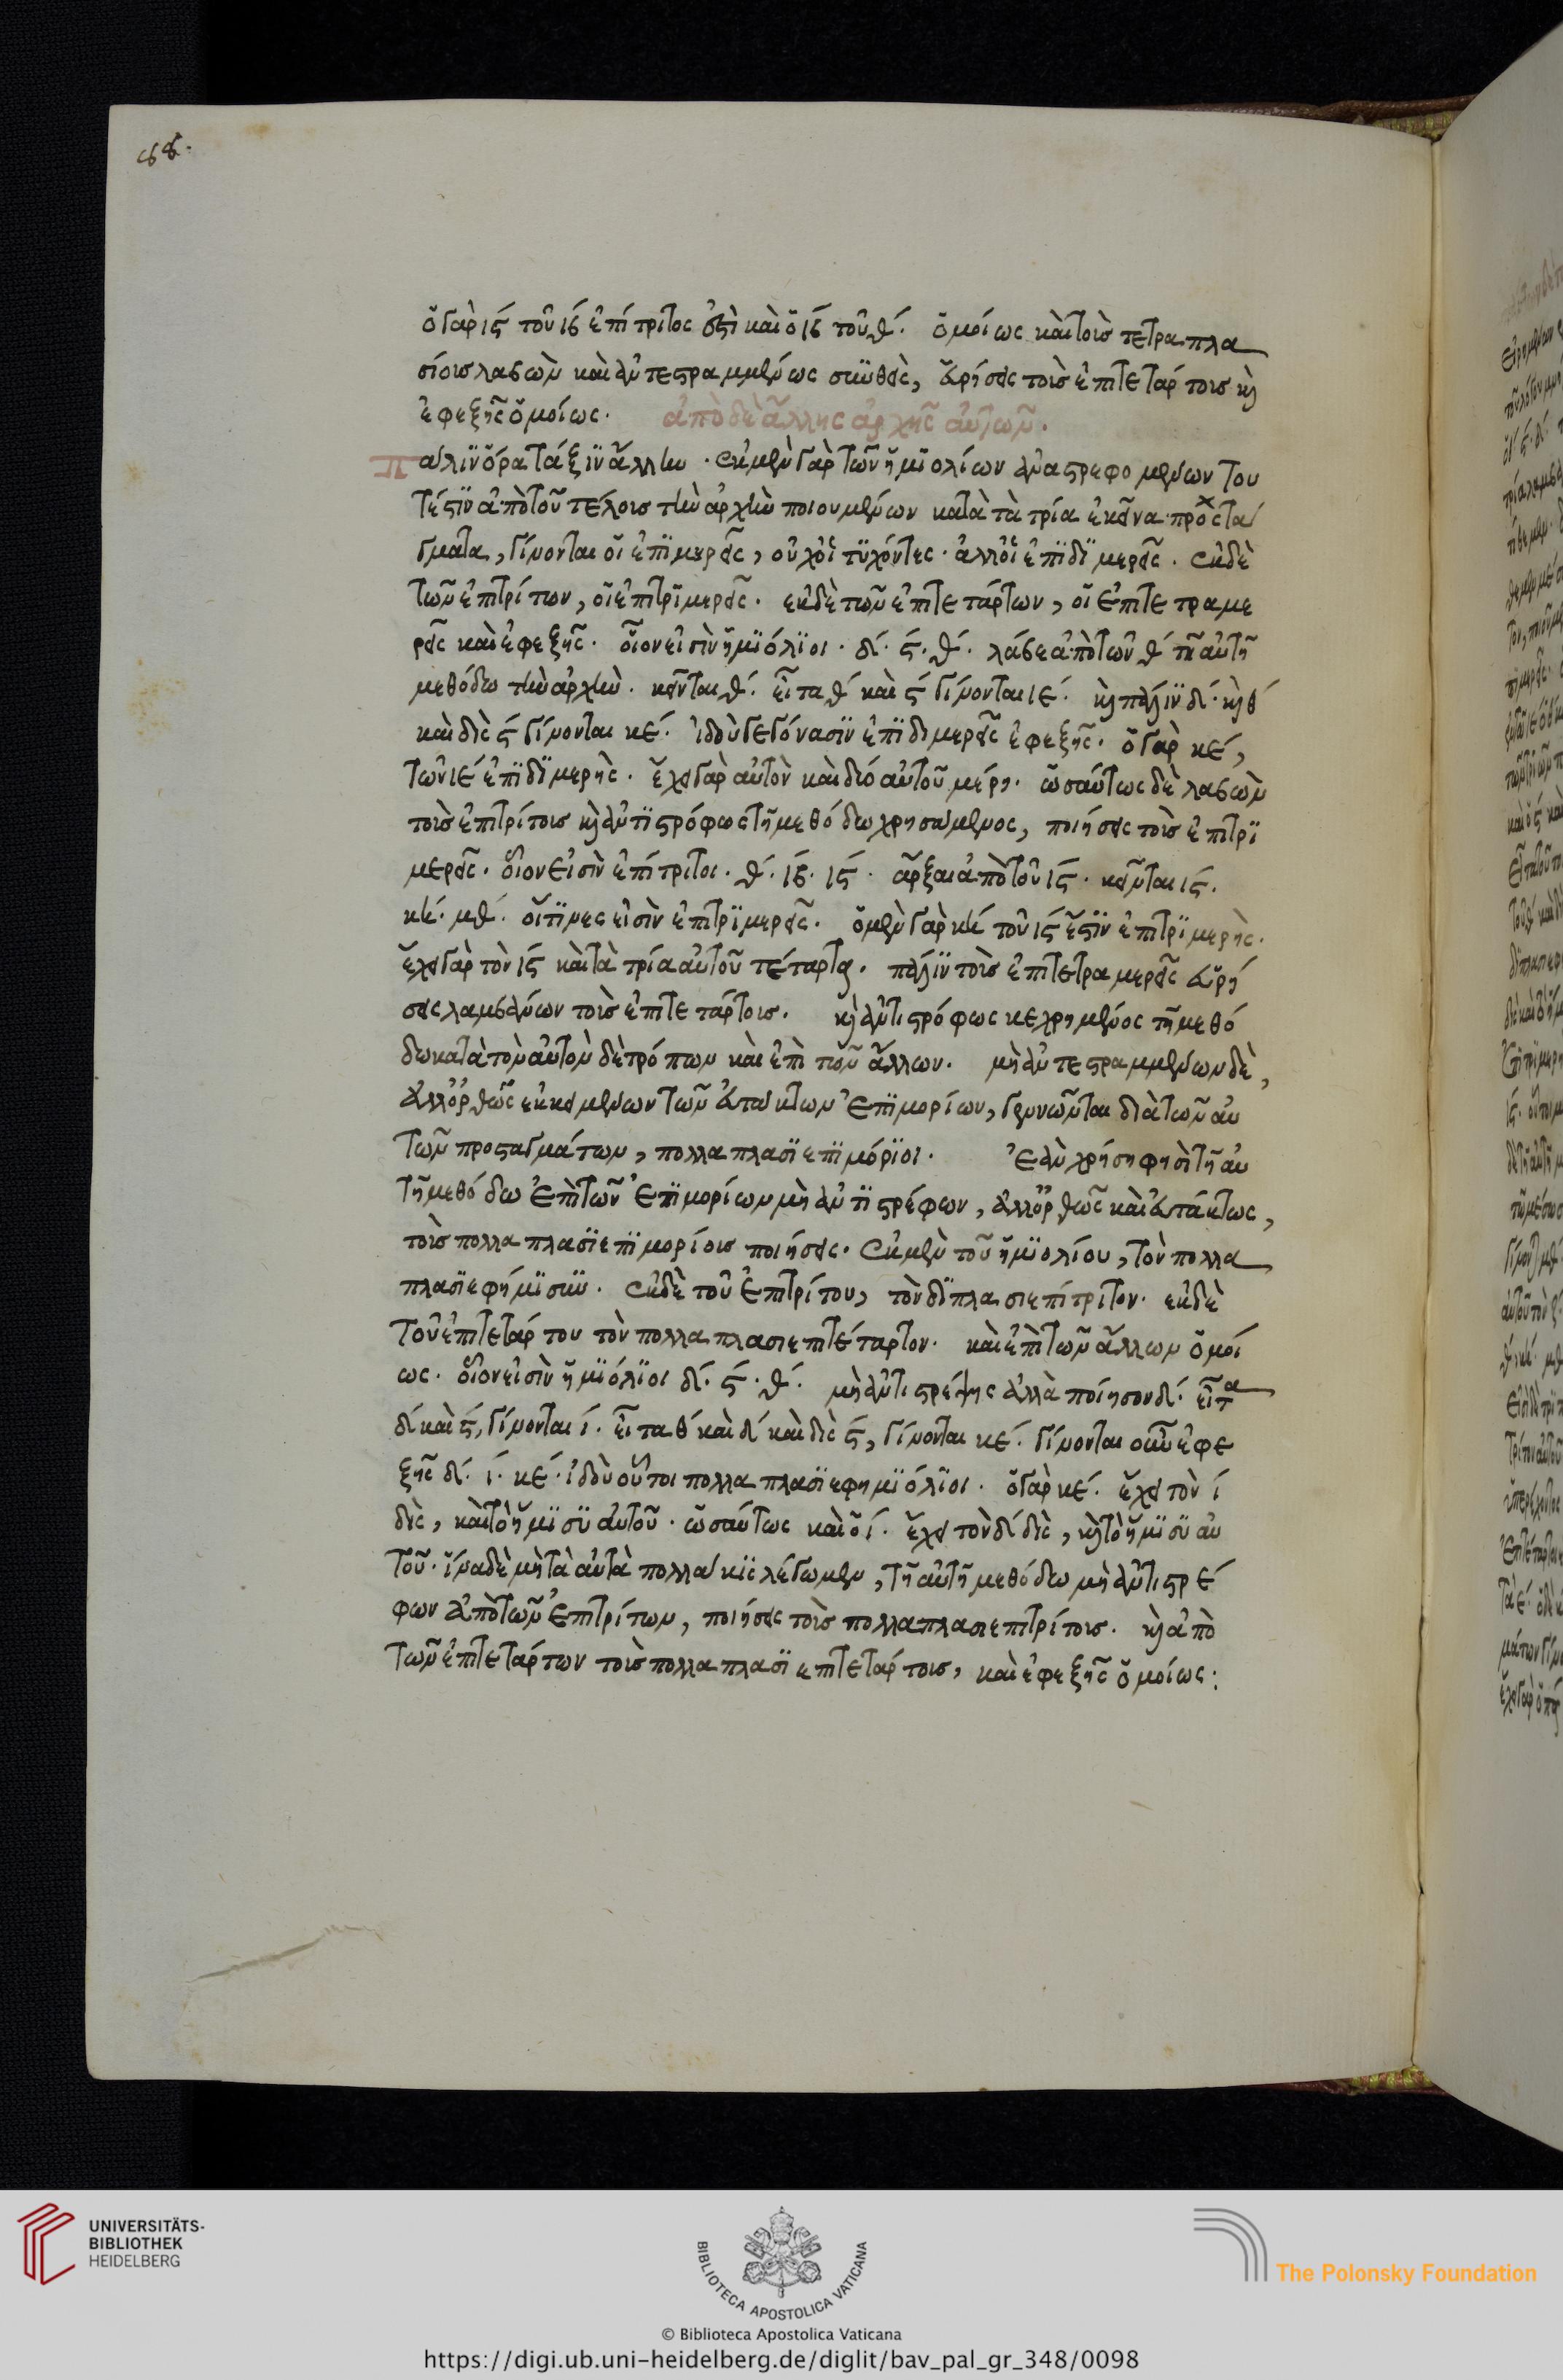 ὁ γὰρ ις΄ τοῦ ιβ΄ ἐπίτριτος ἐστὶ καὶ ὁ ιβ΄ τοῦ θ΄. ὁμοίως καὶ τοὺς τετραπλα
σίους λαβὼν καὶ ἀντεστραμμένως συνθεὶς, εὑρήσεις τοὺς ἐπιτετάρτους κὶ
ἐφεξῆς ὁμοίως. ἀπὸ δὲ ἄλλης ἀρχῆς αὐτῶν.
Πάλιν ὅρα τάξιν ἄλλην. ἐκ μὲν γὰρ τῶν ἡμιολίων ἀναστρεφομένων του
τέστιν ἀπὸ τοῦ τέλους τὴν ἀρχὴν ποιουμένων κατὰ τὰ τρία ἐκεῖνα προστά
γματα, γίνονται οἱ ἐπιμερεῖς, οὐχ οἱ τυχόντες. ἀλλ' οἱ ἐπιδιμερεῖς. ἐκ δὲ
τῶν ἐπιτρίτων, οἱ ἐπιτριμερεῖς. ἐκ δὲ τῶν ἐπιτετάρτων, οἱ ἐπιτετραμε
ρεῖς καὶ ἐφεξῆς. οἷον εἰσὶν ἡμιόλιοι. δ΄. ς΄. θ΄. λάβε ἀπὸ τῶν θ΄ τῇ αὐτῇ
μεθόδω τὴν ἀρχὴν. κεῖνται θ΄. εἶτα θ΄ καὶ ς΄ γίνονται ιε΄. κὶ πάλιν δ΄. κὶ θ΄
καὶ δὶς ς΄ γίνονται κε΄. ἰδοὺ γεγόνασιν ἐπιδιμερεῖς ἐφεξῆς. ὁ γὰρ κε΄,
τῶν ιε΄ ἐπιδιμερὴς. ἔχει γὰρ αὐτὸν καὶ δύο αὐτοῦ μέρη. ὡσαύτως δὲ λαβὼν
τοὺς ἐπιτρίτους κὶ ἀντιστρόφως τῇ μεθόδω χρησάμενος, ποιήσεις τοὺς ἐπιτρι
μερεῖς. οἷον εἰσὶν ἐπίτριτοι. θ΄. ιβ΄. ις΄. ἄρξαι ἀπὸ τοῦ ις΄. κεῖνται ις΄.
κη΄. μθ΄. οἵτινες εἰσὶν ἐπιτριμερεῖς. ὁ μὲν γὰρ κη΄ τοῦ ις΄ ἔστιν ἐπιτριμερὴς.
ἔχει γὰρ τὸν ις΄ καὶ τὰ τρία αὐτοῦ τέταρτα. πάλιν τοὺς ἐπιτετραμερεῖς εὑρή
σεις λαμβάνων τοὺς ἐπιτετάρτους. κὶ ἀντιστρόφως κεχρημένος τῇ μεθό
δω κατὰ τὸν αὐτὸν δὲ τρόπον καὶ ἐπὶ τῶν ἄλλων. μὴ ἀντεστραμμένων δὲ,
ἀλλ' ὀρθῶς ἐκκειμένων τῶν ἀτάκτων ἐπιμορίων, γεννῶνται διὰ τῶν αὐ
τῶν προσταγμάτων, πολλαπλασιεπιμόριοι. Ἐὰν χρήσῃ φησὶ τῇ αὐ
τῇ μεθόδω ἐπὶ τῶν ἐπιμορίων μὴ ἀντιστρέφων, ἀλλ' ὀρθῶς καὶ ἀτάκτως,
τοὺς πολλαπλασιεπιμορίους ποιήσεις. ἐκ μὲν τοῦ ἡμιολίου, τὸν πολλα
πλασιεφήμισυν. ἐκ δὲ τοῦ ἐπιτρίτου, τὸν διπλασιεπίτριτον. ἐκ δὲ
τοῦ ἐπιτετάρτου τὸν πολλαπλασιεπιτέταρτον. καὶ ἐπὶ τῶν ἄλλων ὁμοί
ως. οἷον εἰσὶν ἡμιόλιοι δ΄. ς΄. θ΄. μὴ ἀντιστρέψης ἀλλὰ ποίησον δ΄. εἶτα
δ΄ καὶ ς΄, γίνονται ι΄. εἶτα θ΄ καὶ δ΄ καὶ δὶς ς΄, γίνονται κε΄. γίνονται οὖν ἐφε
ξῆς δ΄. ι΄. κε΄. ἰδοὺ οὗτοι πολλαπλασιεφημιόλιοι. ὁ γὰρ κε΄. ἔχει τὸν ι΄
δὶς, καὶ τὸ ἥμισυ αὐτοῦ. ὡσαύτως καὶ ὁ ι΄. ἔχει τὸν δ΄ δὶς, κὶ τὸ ἥμισυ αὐ
τοῦ. ἵνα δὲ μὴ τὰ αὐτὰ πολλάκις λέγωμεν, τῇ αὐτῇ μεθόδω μὴ ἀντιστρέ
φων ἀπὸ τῶν ἐπιτρίτων, ποιήσεις τοὺς πολλαπλασιεπιτρίτους. κὶ ἀπὸ
τῶν ἐπιτετάρτων τοὺς πολλαπλασιεπιτετάρτους, καὶ ἐφεξῆς ὁμοίως:
UNIVERSITÄTS-
BIBLIOTHEK
HEIDELBERG
BIBLIOTECA APOSTOLICA VATICANA
The Polonsky Foundation
© Biblioteca Apostolica Vaticana
https://digi.ub.uni-heidelberg.de/diglit/bav_pal_gr_348/0098